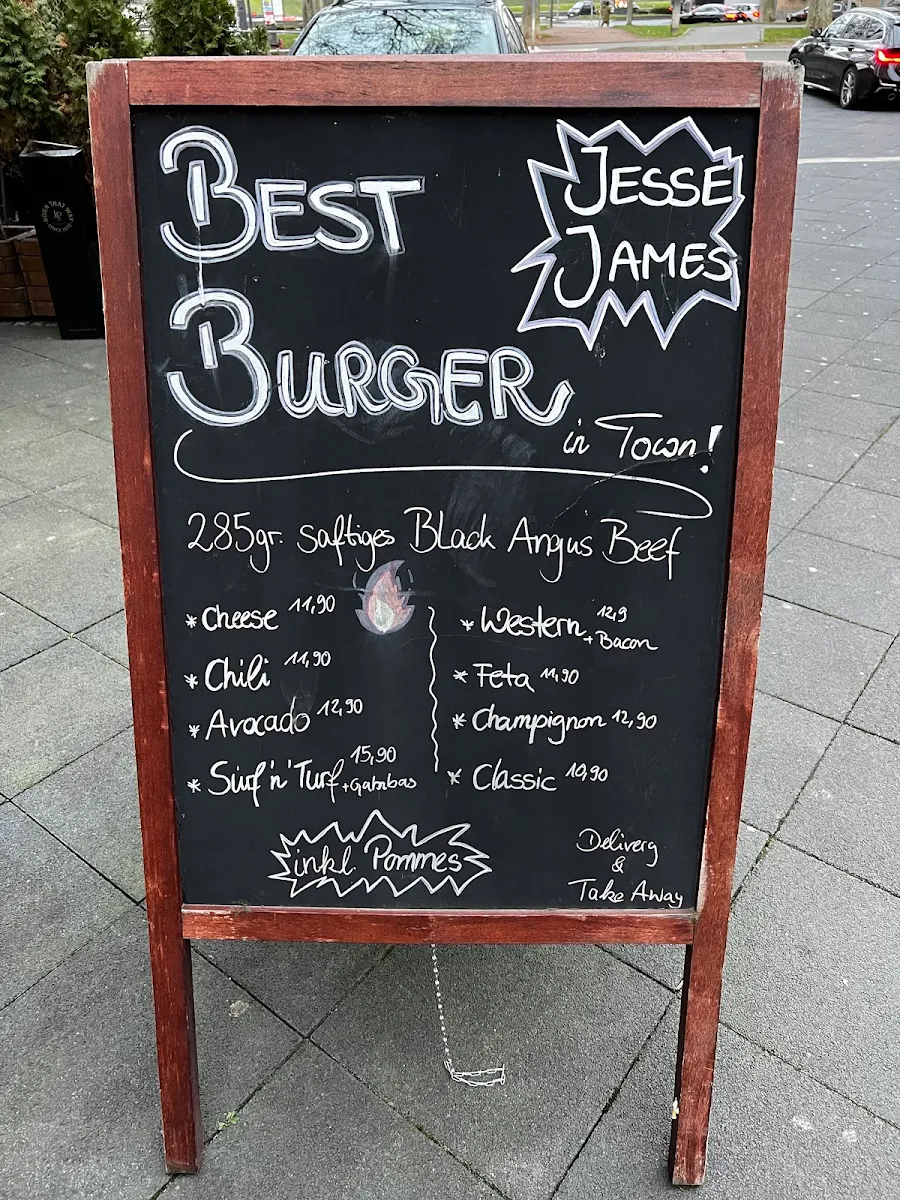 BEST
BURGER
in Town!
JESSE
JAMES
285gr. saftiges Black Angus Beef
* Cheese 11,90
* Chili 11,90
* Avocado 12,90
* Surf'n'Turf 15,90
+Gambas
* Western 12,9
+Bacon
* Feta 11,90
* Champignon 12,90
* Classic 10,90
inkl. Pommes
Delivery
&
Take Away